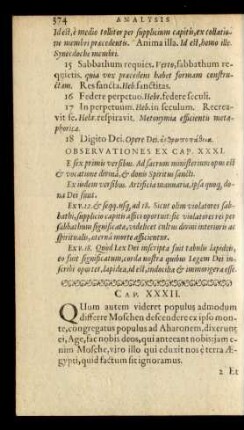 574 ANALYSIS
Id est, è medio tollitor per supplicium capitis, ex collatione membri præcedentis. Anima illa. Id est, homo ille.
Synecdoche membri.
15 Sabbathum requies. Verto, sabbathum requietis. quia vox præcedens habet formam constructam. Res sancta. Heb. sanctitas.
16 Fœdere perpetuo. Heb. fœdere seculi.
17 In perpetuum. Heb. in seculum. Recreavit se. Heb. respiravit. Metonymia efficientis metaphorica.
18 Digito Dei. Opere Dei.
OBSERVATIONES EX CAP. XXXI.
E sex primis versibus. Ad sacrum ministerium opus est & vocatione divinâ, & donis Spiritus sancti.
Ex iisdem versibus. Artificia manuaria, ipsa quoq, dona Dei sunt.
Ex v. 12. & seqq. usq, ad 18. Sicut olim violatores sabbathi, supplicio capitis afficiebantur: sic violatores rei per sabbathum significatæ, videlicet cultus divini interioris ac spiritualis, æternâ morte afficientur.
Ex v. 18. Quòd Lex Dei inscripta fuit tabulis lapideis, eo fuit significatum, corda nostra quibus Legem Dei inscribi oportet, lapidea, id est, indocilia & immorigera esse.
CAP. XXXII.
QUum autem videret populus admodum differre Moschen descendere ex ipso monte, congregatus populus ad Aharonem, dixerunt ei, Age, fac nobis deos, qui anteeant nobis: jam enim Mosche, viro illo qui eduxit nos è terra Ægypti, quid factum sit ignoramus.
2 Et